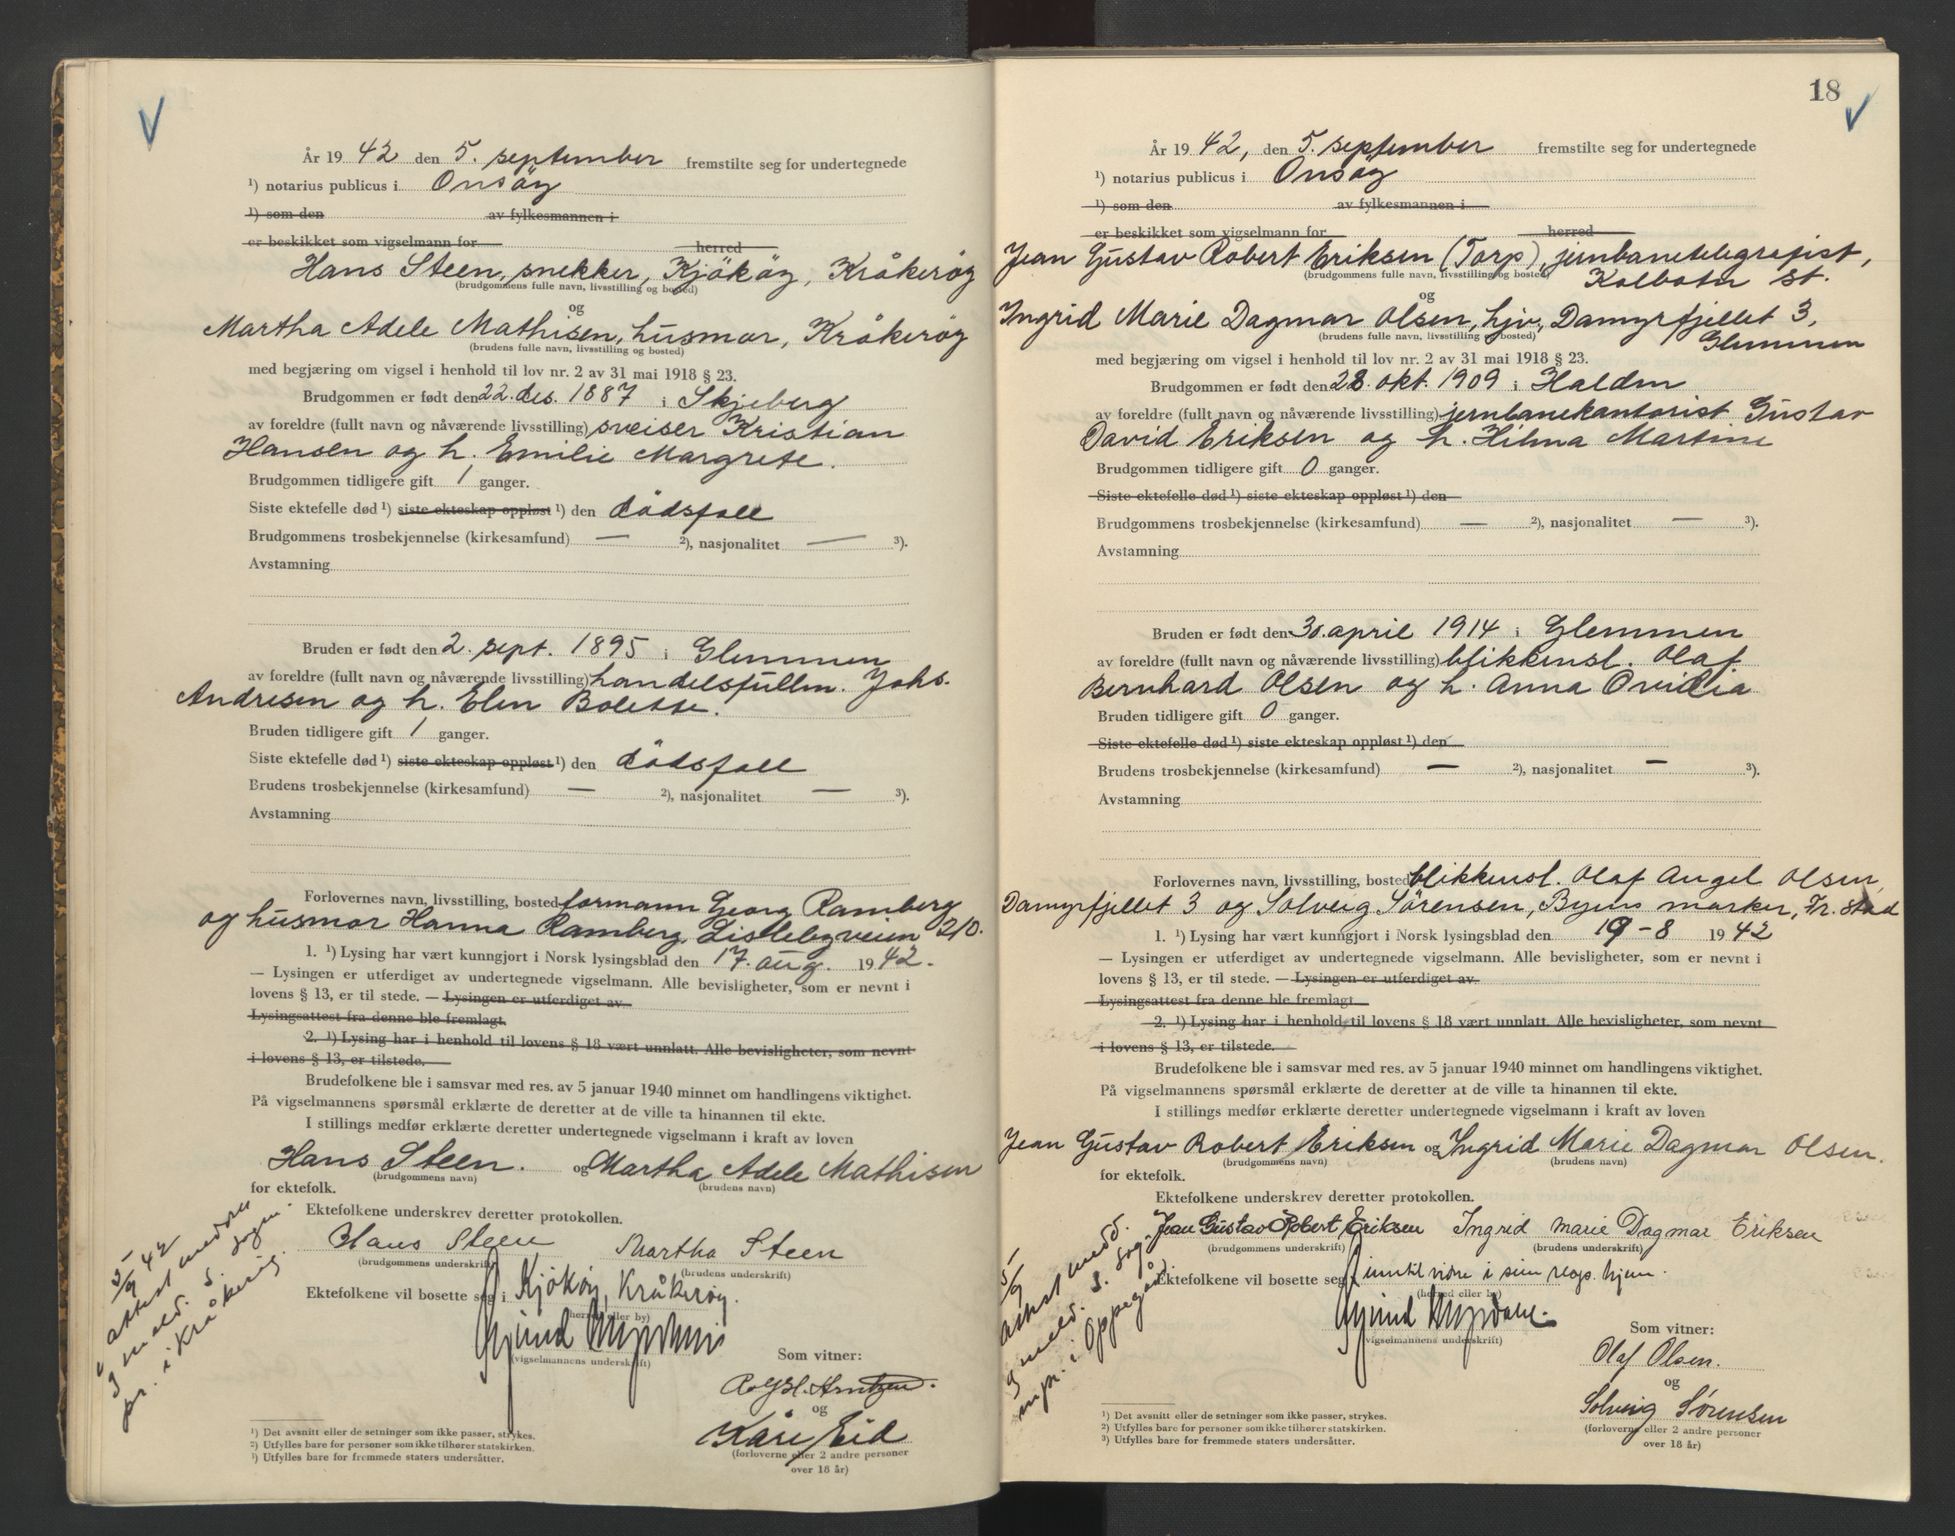 År 19 42 den 5. september fremstilte seg for undertegnede
¹) notarius publicus i Onsöy
¹) som den av fylkesmannen i
er beskikket som vigselmann for herred
Hans Steen, snekker, Kjököy, Kråkeröy
(brudgommens fulle navn, livsstilling og bosted)
og
Martha Adele Mathisen, husmor, Kråkeröy
(brudens fulle navn, livsstilling og bosted)
med begjæring om vigsel i henhold til lov nr. 2 av 31 mai 1918 § 23.
Brudgommen er født den 22. des. 1887 i Skjeberg
av foreldre (fullt navn og nåværende livsstilling) sveiser Kristian
Hansen og h. Emilie Margrete.
Brudgommen tidligere gift 1 ganger.
Siste ektefelle død ¹) siste ekteskap oppløst ¹) den dödsfall
Brudgommens trosbekjennelse (kirkesamfund) — ²), nasjonalitet — ³).
Avstamning
Bruden er født den 2. sept. 1895 i Glemmen
av foreldre (fullt navn og nåværende livsstilling) handelsfullm. Johs.
Andresen og h. Elen Bolette.
Bruden tidligere gift 1 ganger.
Siste ektefelle død ¹) siste ekteskap oppløst ¹) den dödsfall
Brudens trosbekjennelse (kirkesamfund) — ²), nasjonalitet — ³).
Avstamning
Forlovernes navn, livsstilling, bosted formann Georg Ramberg
og husmor Hanna Ramberg, Lislebyveien 210.
1. ¹) Lysing har vært kunngjort i Norsk lysingsblad den 17. aug. 19 42.
— Lysingen er utferdiget av undertegnede vigselmann. Alle bevisligheter, som er nevnt i
lovens § 13, er til stede. — Lysingen er utferdiget av
Lysingsattest fra denne ble fremlagt.
2. ¹) Lysing har i henhold til lovens § 18 vært unnlatt. Alle bevisligheter, som nevnt
i lovens § 13, er tilstede.
Brudefolkene ble i samsvar med res. av 5 januar 1940 minnet om handlingens viktighet.
På vigselmannens spørsmål erklærte de deretter at de ville ta hinannen til ekte.
I stillings medfør erklærte deretter undertegnede vigselmann i kraft av loven
Hans Steen. og Martha Adele Mathisen
(brudgommens navn) (brudens navn)
for ektefolk.
Ektefolkene underskrev deretter protokollen.
Hans Steen Martha Steen
(brudgommens underskrift) (brudens underskrift)
Ektefolkene vil bosette seg i Kjököy, Kråkeröy.
(herred eller by)
(vigselmannens underskrift)
Som vitner:
Arntzen.
og
Kåre Eid
(forloverne eller 2 andre personer
over 18 år)
5/9 42
attest
g meld. s. dagen.
pr. i Kråkeröy.
¹) Det avsnitt eller de setninger som ikke passer, strykes.
²) Utfylles bare for personer som ikke tilhører statskirken.
³) Utfylles bare for fremmede staters undersåtter.
18
År 19 42, den 5. september fremstilte seg for undertegnede
¹) notarius publicus i Onsöy
¹) som den av fylkesmannen i
er beskikket som vigselmann for herred
Jean Gustav Robert Eriksen (Torp), jernbanetelegrafist,
(brudgommens fulle navn, livsstilling og bosted) Kolbotn st.
og
Ingrid Marie Dagmar Olsen, hjv., Damyrfjellet 3,
(brudens fulle navn, livsstilling og bosted) Glemmen
med begjæring om vigsel i henhold til lov nr. 2 av 31 mai 1918 § 23.
Brudgommen er født den 28. okt. 1909 i Halden
av foreldre (fullt navn og nåværende livsstilling) jernbanekontorist Gustav
David Eriksen og h. Hilma Martine
Brudgommen tidligere gift 0 ganger.
Siste ektefelle død ¹) siste ekteskap oppløst ¹) den
Brudgommens trosbekjennelse (kirkesamfund) — ²), nasjonalitet — ³).
Avstamning
Bruden er født den 30. april 1914 i Glemmen
av foreldre (fullt navn og nåværende livsstilling) blikkensl. Olaf
Bernhard Olsen og h. Anna Ovidia
Bruden tidligere gift 0 ganger.
Siste ektefelle død ¹) siste ekteskap oppløst ¹) den
Brudens trosbekjennelse (kirkesamfund) — ²), nasjonalitet — ³).
Avstamning
Forlovernes navn, livsstilling, bosted blikkensl. Olaf Angel Olsen,
Damyrfjellet 3 og Solveig Sørensen, Byens marker, Fr.stad
1. ¹) Lysing har vært kunngjort i Norsk lysingsblad den 19-8 19 42
— Lysingen er utferdiget av undertegnede vigselmann. Alle bevisligheter, som er nevnt i
lovens § 13, er til stede. — Lysingen er utferdiget av
Lysingsattest fra denne ble fremlagt
2. ¹) Lysing har i henhold til lovens § 18 vært unnlatt. Alle bevisligheter, som nevnt
i lovens § 13, er tilstede.
Brudefolkene ble i samsvar med res. av 5 januar 1940 minnet om handlingens viktighet.
På vigselmannens spørsmål erklærte de deretter at de ville ta hinannen til ekte.
I stillings medfør erklærte deretter undertegnede vigselmann i kraft av loven
Jean Gustav Robert Eriksen og Ingrid Marie Dagmar Olsen.
(brudgommens navn) (brudens navn)
for ektefolk.
Ektefolkene underskrev deretter protokollen.
Jean Gustav Robert Eriksen Ingrid Marie Dagmar Eriksen
(brudgommens underskrift) (brudens underskrift)
Ektefolkene vil bosette seg i inntil videre i sine resp. hjem.
(herred eller by)
(vigselmannens underskrift)
Som vitner:
Olaf Olsen.
og
Solveig Sørensen
(forloverne eller 2 andre personer
over 18 år)
5/9
attest medd.
g meld. s. dag.
spr. i Oppegård
¹) Det avsnitt eller de setninger som ikke passer, strykes.
²) Utfylles bare for personer som ikke tilhører statskirken.
³) Utfylles bare for fremmede staters undersåtter.